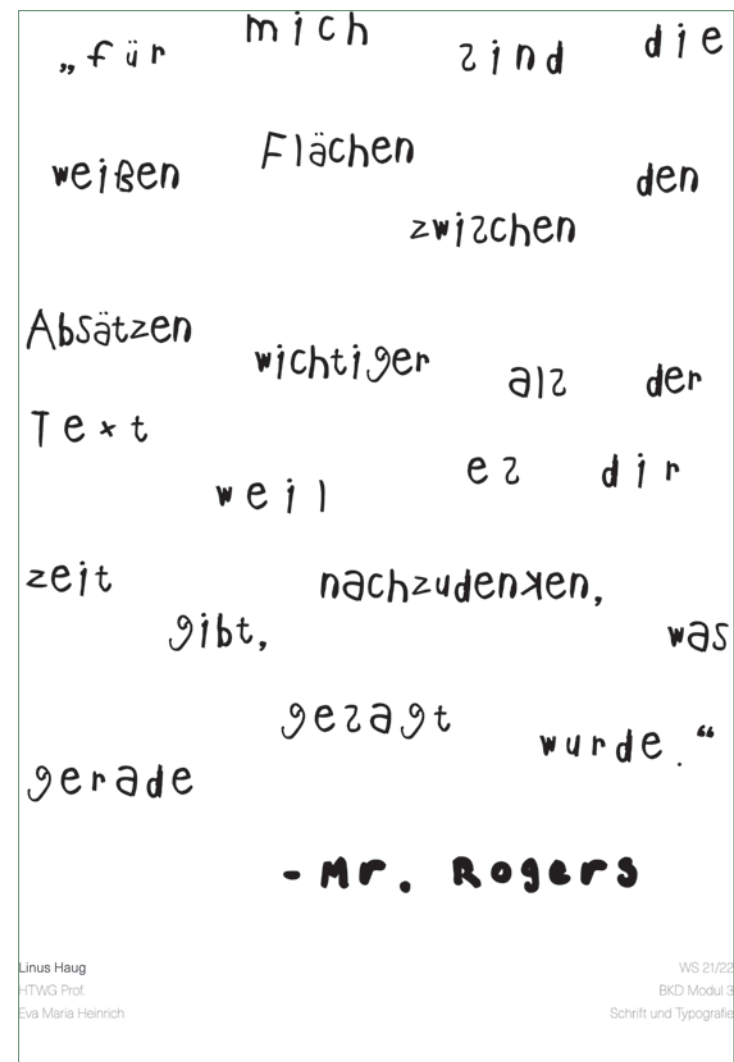 „für mich sind die
weißen Flächen zwischen den
Absätzen wichtiger als der
Text weil es dir
zeit gibt, nachzudenken, was
gerade gesagt wurde.“
- Mr. Rogers
Linus Haug
HTWG Prof.
Eva Maria Heinrich
WS 21/22
BKD Modul 3
Schrift und Typografie